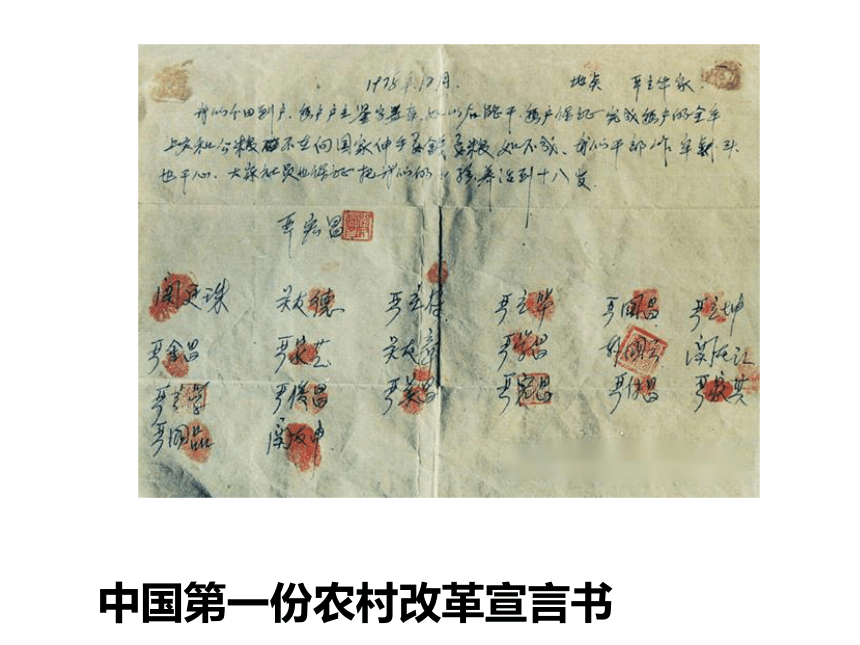 1978年12月. 地点 严立华家
我们分田到户,每户户主签字盖章,如以后能干,每户保证完成每户的全年
上交和公粮 不在向国家伸手要钱要粮 如不成、我们干部作牢刹头
也干心、大家社员也保证把我们的小孩养活到十八岁.
严宏昌
关廷珠 关友德 严立符 严立华 严国昌 严立坤
严金昌 严家芝 关友章 严学昌 韩国云 关友江
严立学 严俊昌 严美昌 严宏昌 严付昌 严家其
严国品 关友申
中国第一份农村改革宣言书